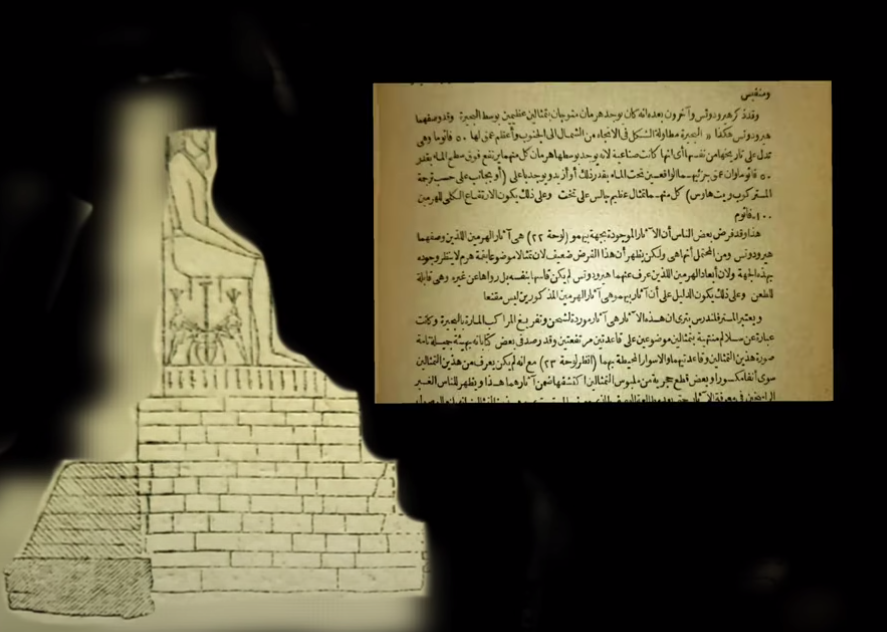 ومنفيس
وقد ذكر هيرودوتس وآخرون بعده انه كان يوجد هرمان متوجان بتمثالين عظيمين بوسط البحيرة وقد وصفهما
هيرودوتس هكذا « البحيرة مطاولة الشكل في الاتجاه من الشمال الى الجنوب وأعظم عمق لها ٥٠ فاتوما وهى
تدل على تاريخها من نفسها أى انها كانت صناعية لانه يوجد بوسطها هرمان كل منهما يرتفع فوق سطح الماء بقدر
٥٠ فاتوما وان عمق جزئيهما الواقعين تحت الماء بقدر ذلك أو أزيد ويوجد باعلى (أو بجانب على حسب ترجمة
المستر كوب ويت هاوس) كل منهما تمثال عظيم جالس على تخت وعلى ذلك يكون الارتفاع الكلى للهرمين
١٠٠ فاتوم
هذا وقد فرض بعض الناس أن الآثار الموجودة بجهة بيهمو (لوحة ٢٢) هى آثار الهرمين اللذين وصفهما
هيرودوتس ومن المحتمل أنها هى ولكن يظهر أن هذا الفرض ضعيف لان تمثالا موضوعا بقمة هرم لا ينظر وجوده
بهذه الجهة ولان أبعاد الهرمين اللذين عرف عنهما هيرودوتس لم يكن قاسها بنفسه بل رواها عن غيره وهى قابلة
للطعن وعلى ذلك يكون الدليل على أن آثار بيهمو هى آثار الهرمين المذكورين ليس مقنعا
ويعتبر المستر فلندرس بترى ان هذه الآثار هى آثار موردة لشحن وتفريغ المراكب المارة بالبحيرة وكانت
عبارة عن سلالم منتهية بتمثالين موضوعين على قاعدتين مرتفعتين وقد رصد فى بعض كتاباته بهيئة جميلة تامة
صورة هذين التمثالين وقاعدتيهما والاسوار المحيطة بهما (انظر لوحة ٢٣) مع انه لم يكن يعرف من هذين التمثالين
سوى أنفا مكسورا وبعض قطع حجرية من ملبوس التمثالين اكتشفها ضمن آثارهما هذا ويظهر للناس الغير